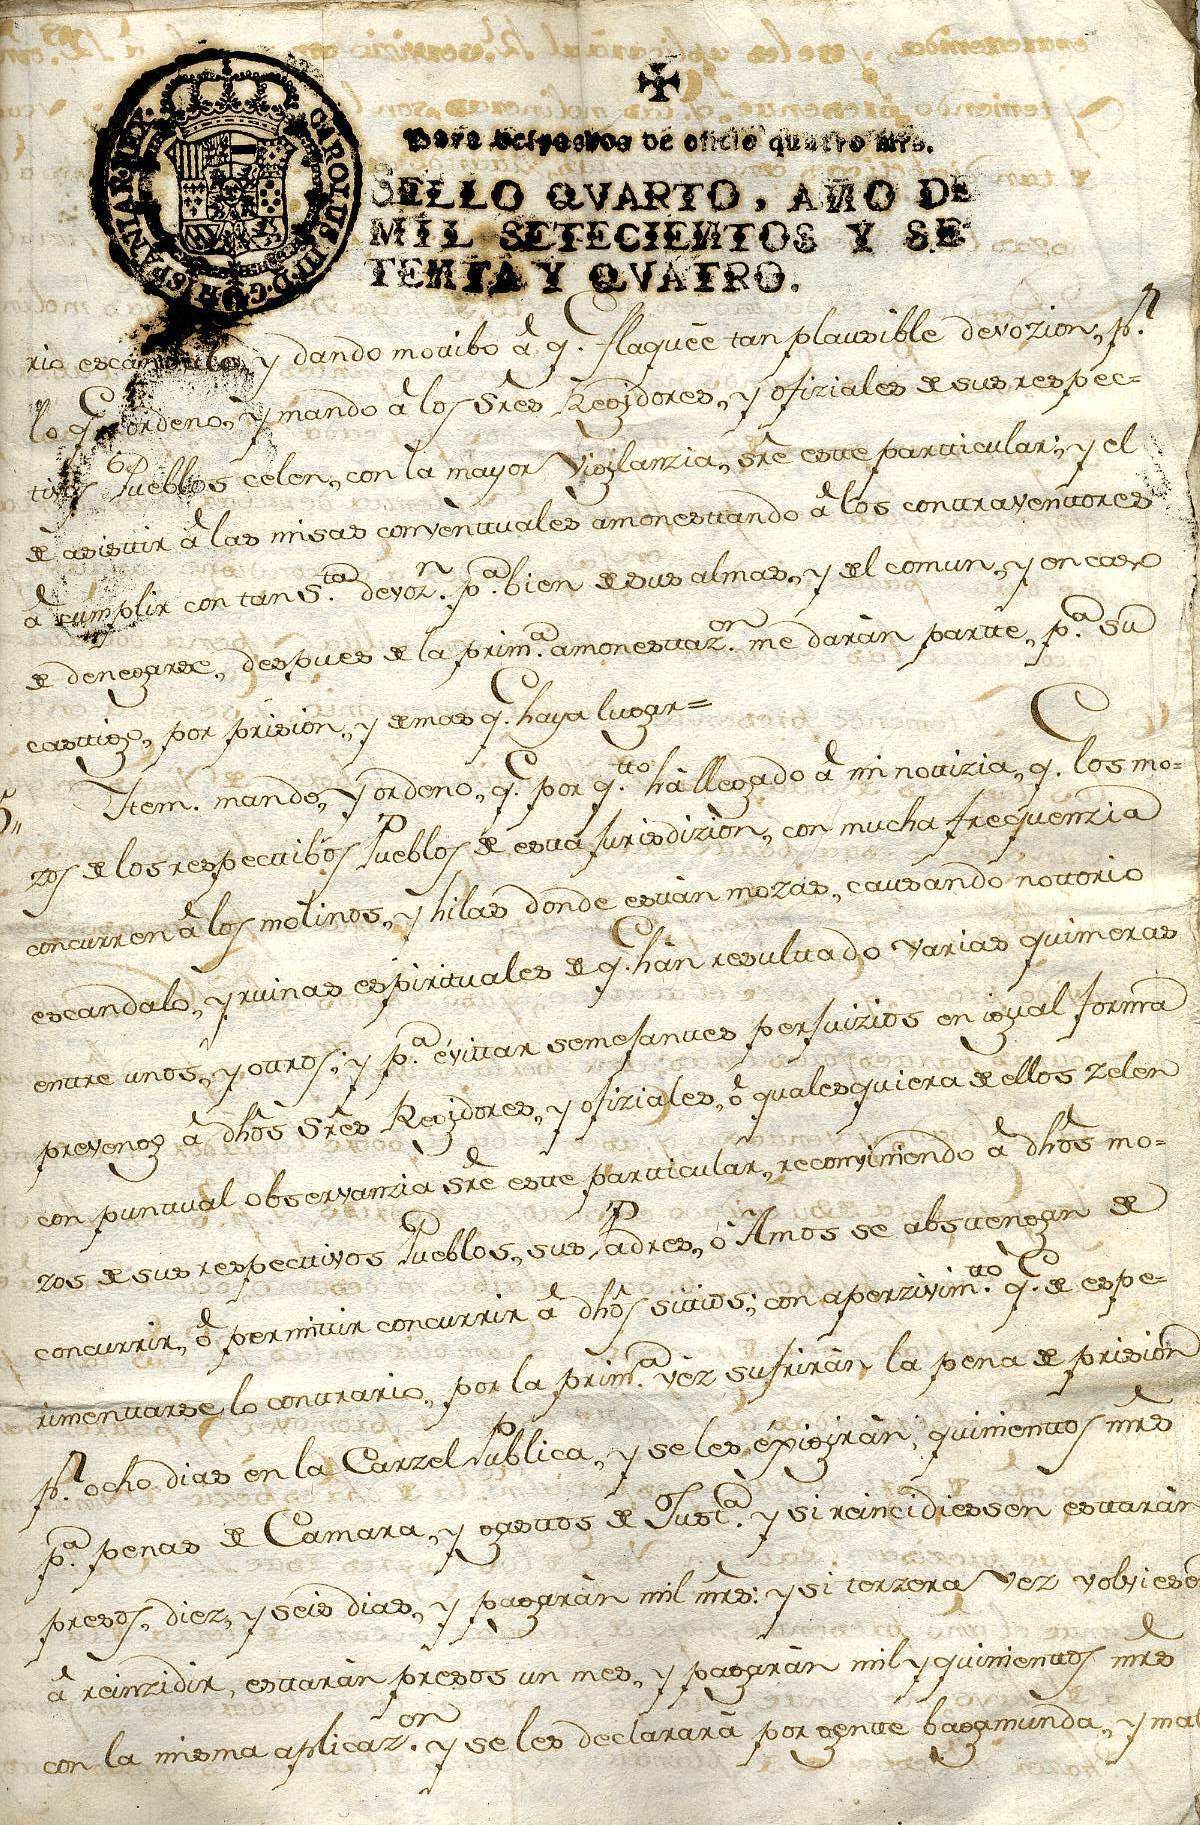 CAROLUS III D.G. HISPANIAR. REX.
Para despachos de oficio quatro mrs.
SELLO QVARTO, AÑO DE
MIL SETECIENTOS Y SE
TENTA Y QVATRO.
rio escandalo, y dando motibo â q. flaquèe tan plausible devozion, p.r
lo q. ordeno, y mando â los Sres Regidores, y ofiziales de sus respec=
tivos Pueblos celen, con la mayor Vigilanzia, sre este particular; y el
de asistir â las misas conventuales amonestando â los contraventores
â cumplir con tan S.ta devoz.n p.a bien de sus almas, y del comun, y en caso
de denegarse, despues de la prim.a amonestaz.on me daràn parte, p.a su
castigo, por prision, y demas q. haya lugar=
5,, Item. mando, y ordeno, q. por q.tto hà llegado â mi notizia, q. los mo=
zos de los respectibos Pueblos de esta Jurisdizion, con mucha frequenzia
concurren â los molinos, y hilas donde estàn mozas, causando notorio
escandalo, y ruinas espirituales de q. hàn resultado varias quimeras
entre unos, y otros; y p.a évitar semejantes perjuizios en igual forma
prevengo â dhos Sres Regidores, y ofiziales, ô qualesquiera de ellos zelen
con puntual observanzia sre este particular, reconviniendo â dhos mo=
zos de sus respectivos Pueblos, sus Padres, ô Amos se abstengan de
concurrir, ô permitir concurrir â dhos sitios; con aperzivim.tto q. de espe=
rimentarse lo contrario, por la prim.a vèz sufriràn la pena de prision
p.r ocho dias en la Carzel Publica, y se les exigiràn, quinientos mrs
p.a penas de Camara, y gastos de Just.a y si reincidiessen estaràn
presos, diez, y seis dias, y pagaràn mil mrs: y si terzera Vez volviesen
â reinzidir, estaràn presos un mes, y pagaràn mil y quinientos mrs
con la misma aplicaz.on y se les declararà por gente bagamunda, y mal